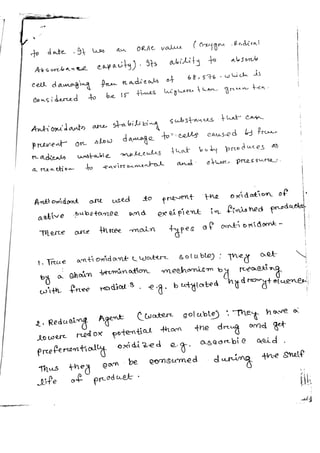 to date. It has an ORAC value (Oxygen Radical
Absorbance capacity). Its ability to absorb
cell damaging free radicals of 68.576 - which is
considered to be 15 times higher than green tea.
Antioxidants are stabilizing substances that can
prevent or slow damage to cells caused by free
radicals unstable molecules that body produces as
a reaction to environmental and other pressure.
Antioxidant are used to prevent the oxidation of
active substance and excipient in finished products
There are three main types of antioxidant -
1. True antioxidant (water soluble) : They act
by a chain termination mechanism by reacting
with free radials. e.g. butylated hydroxytoluene
2. Reducing Agent (water soluble) : They have a
lower redox potential than the drug and get
preferentially oxidized e.g. ascorbic acid.
Thus they can be consumed during the shelf
life of product.